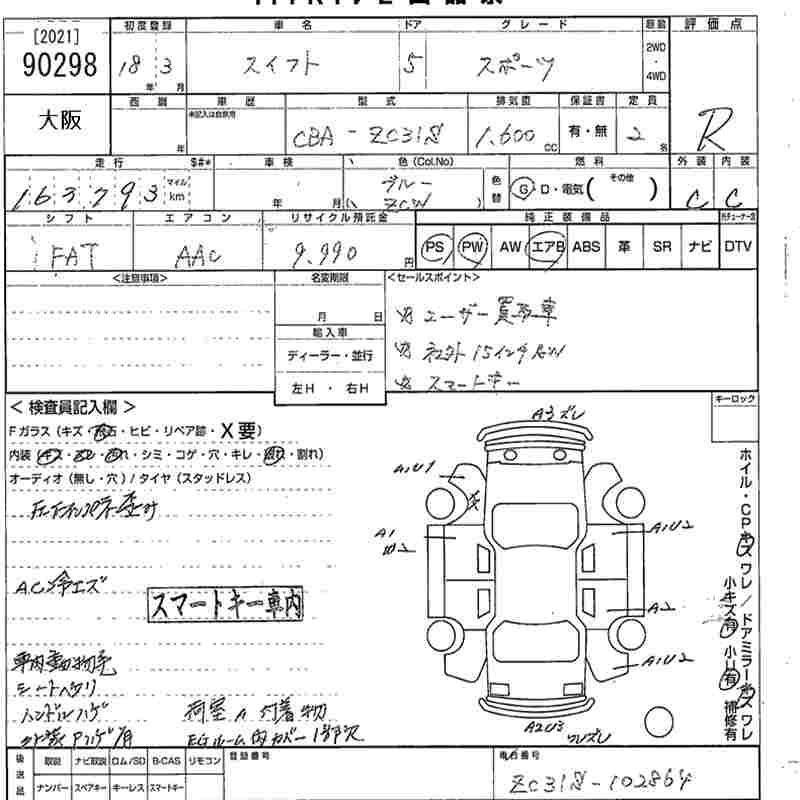 [2021]
90298
大阪
初度登録 車名 ドア グレード 駆動 評価点
18年 3月 スイフト 5 スポーツ 2WD・4WD R
車歴 型式 排気量 保証書 定員
未記入は自家用
年 CBA-ZC31S 1,600cc 有・無 2名
走行 $#* 車検 色(Col.No) 燃料 外装 内装
163793 マイル km 年 月 ブルー ZCW 色替 G・D・電気( その他 ) C C
シフト エアコン リサイクル預託金 純正装備品
FAT AAC 9,990円 PS PW AW エアB ABS 革 SR ナビ DTV
<注意事項> 名変期限 <セールスポイント>
月 日
輸入車
ディーラー・並行
左H・右H
ユーザー買取車
社外15インチAW
スマートキー
<検査員記入欄> キーロック
Fガラス(キズ・飛石・ヒビ・リペア跡・X要)
内装(キズ・スレ・汚れ・シミ・コゲ・穴・キレ・擦れ・割れ)
オーディオ(無し・穴)/タイヤ(スタッドレス)
A3ズレ
A1U1
A1
A1U2
A2
A1U2
A2U3
ワレズレ
AC冷エズ
スマートキー車内
車内動物毛
シートヘタリ
ハンドルハゲ
外装Pハゲ有
荷室内付着物
EGルーム内カバー1部欠
ホイル・CPキズワレ/ドアミラーキズワレ
小キズ有 小U有 補修有
後送品 取説 ナビ取説 ロム/SD B-CAS リモコン 登録番号 車台番号
ナンバー スペアキー キーレス スマートキー ZC31S-102864